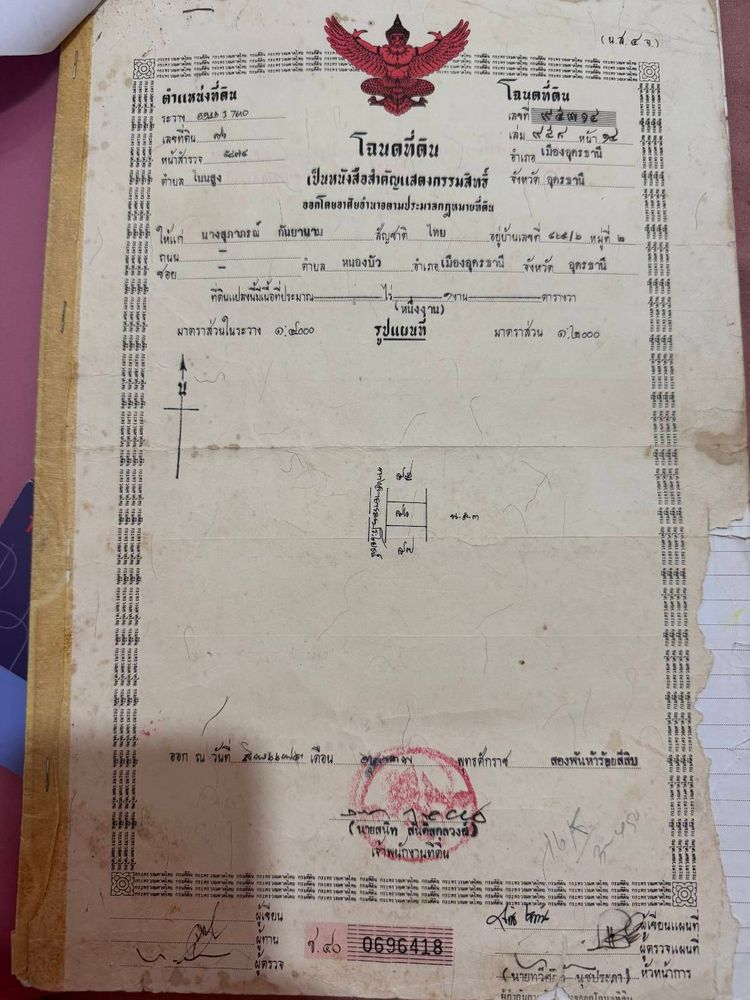 (น.ส.๔ จ.)
ตำแหน่งที่ดิน
ระวาง
เลขที่ดิน
หน้าสำรวจ
ตำบล โนนสูง
โฉนดที่ดิน
เลขที่ ๙๕๓๑๔
เล่ม ๙๕๙ หน้า ๑๔
อำเภอ เมืองอุดรธานี
จังหวัด อุดรธานี
โฉนดที่ดิน
เป็นหนังสือสำคัญแสดงกรรมสิทธิ์
ออกโดยอาศัยอำนาจตามประมวลกฎหมายที่ดิน
ให้แก่ นางสุภาภรณ์ กันยานาม สัญชาติ ไทย อยู่บ้านเลขที่ หมู่ที่ ๒
ถนน –
ซอย – ตำบล หนองบัว อำเภอ เมืองอุดรธานี จังหวัด อุดรธานี
ที่ดินแปลงนี้มีเนื้อที่ประมาณ – ไร่ ๑ งาน – ตารางวา
(หนึ่งงาน)
มาตราส่วนในระวาง ๑:๔๐๐๐ รูปแผนที่ มาตราส่วน ๑:๒๐๐๐
น
น.ส.๓
ออก ณ วันที่ เดือน พุทธศักราช สองพันห้าร้อยสี่สิบ
(นายสนิท สันติสกุลวงศ์)
เจ้าพนักงานที่ดิน
ผู้เขียน
ผู้ทาน
ผู้ตรวจ
ช.๔๐ 0696418
ผู้เขียนแผนที่
ผู้ตรวจแผนที่
หัวหน้าการ